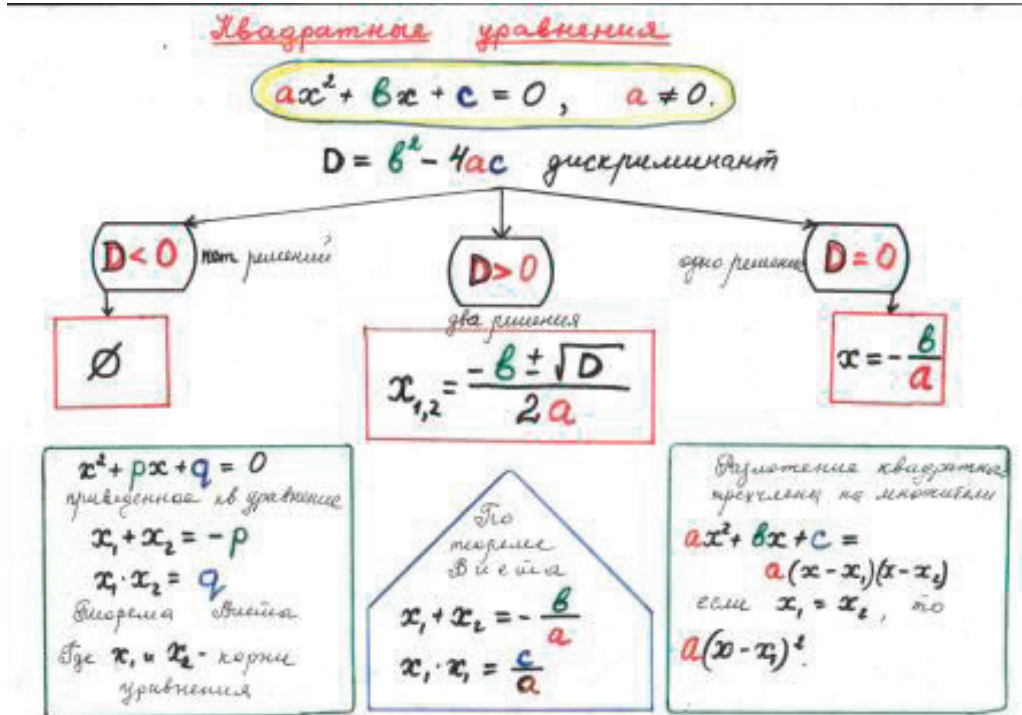 Квадратные уравнения
ax² + bx + c = 0, a ≠ 0.
D = b² - 4ac дискриминант
D < 0 нет решений
D > 0
два решения
одно решение D = 0
∅
x₁,₂ = (-b ± √D) / 2a
x = - b/a
x² + px + q = 0
приведенное кв уравнение
x₁ + x₂ = - p
x₁ · x₂ = q
Теорема Виета
Где x₁ и x₂ - корни
уравнения
По
теореме
Виета
x₁ + x₂ = - b/a
x₁ · x₁ = c/a
Разложение квадратных
трехчлена на множители
ax² + bx + c =
a(x - x₁)(x - x₂)
если x₁ = x₂, то
a(x - x₁)².